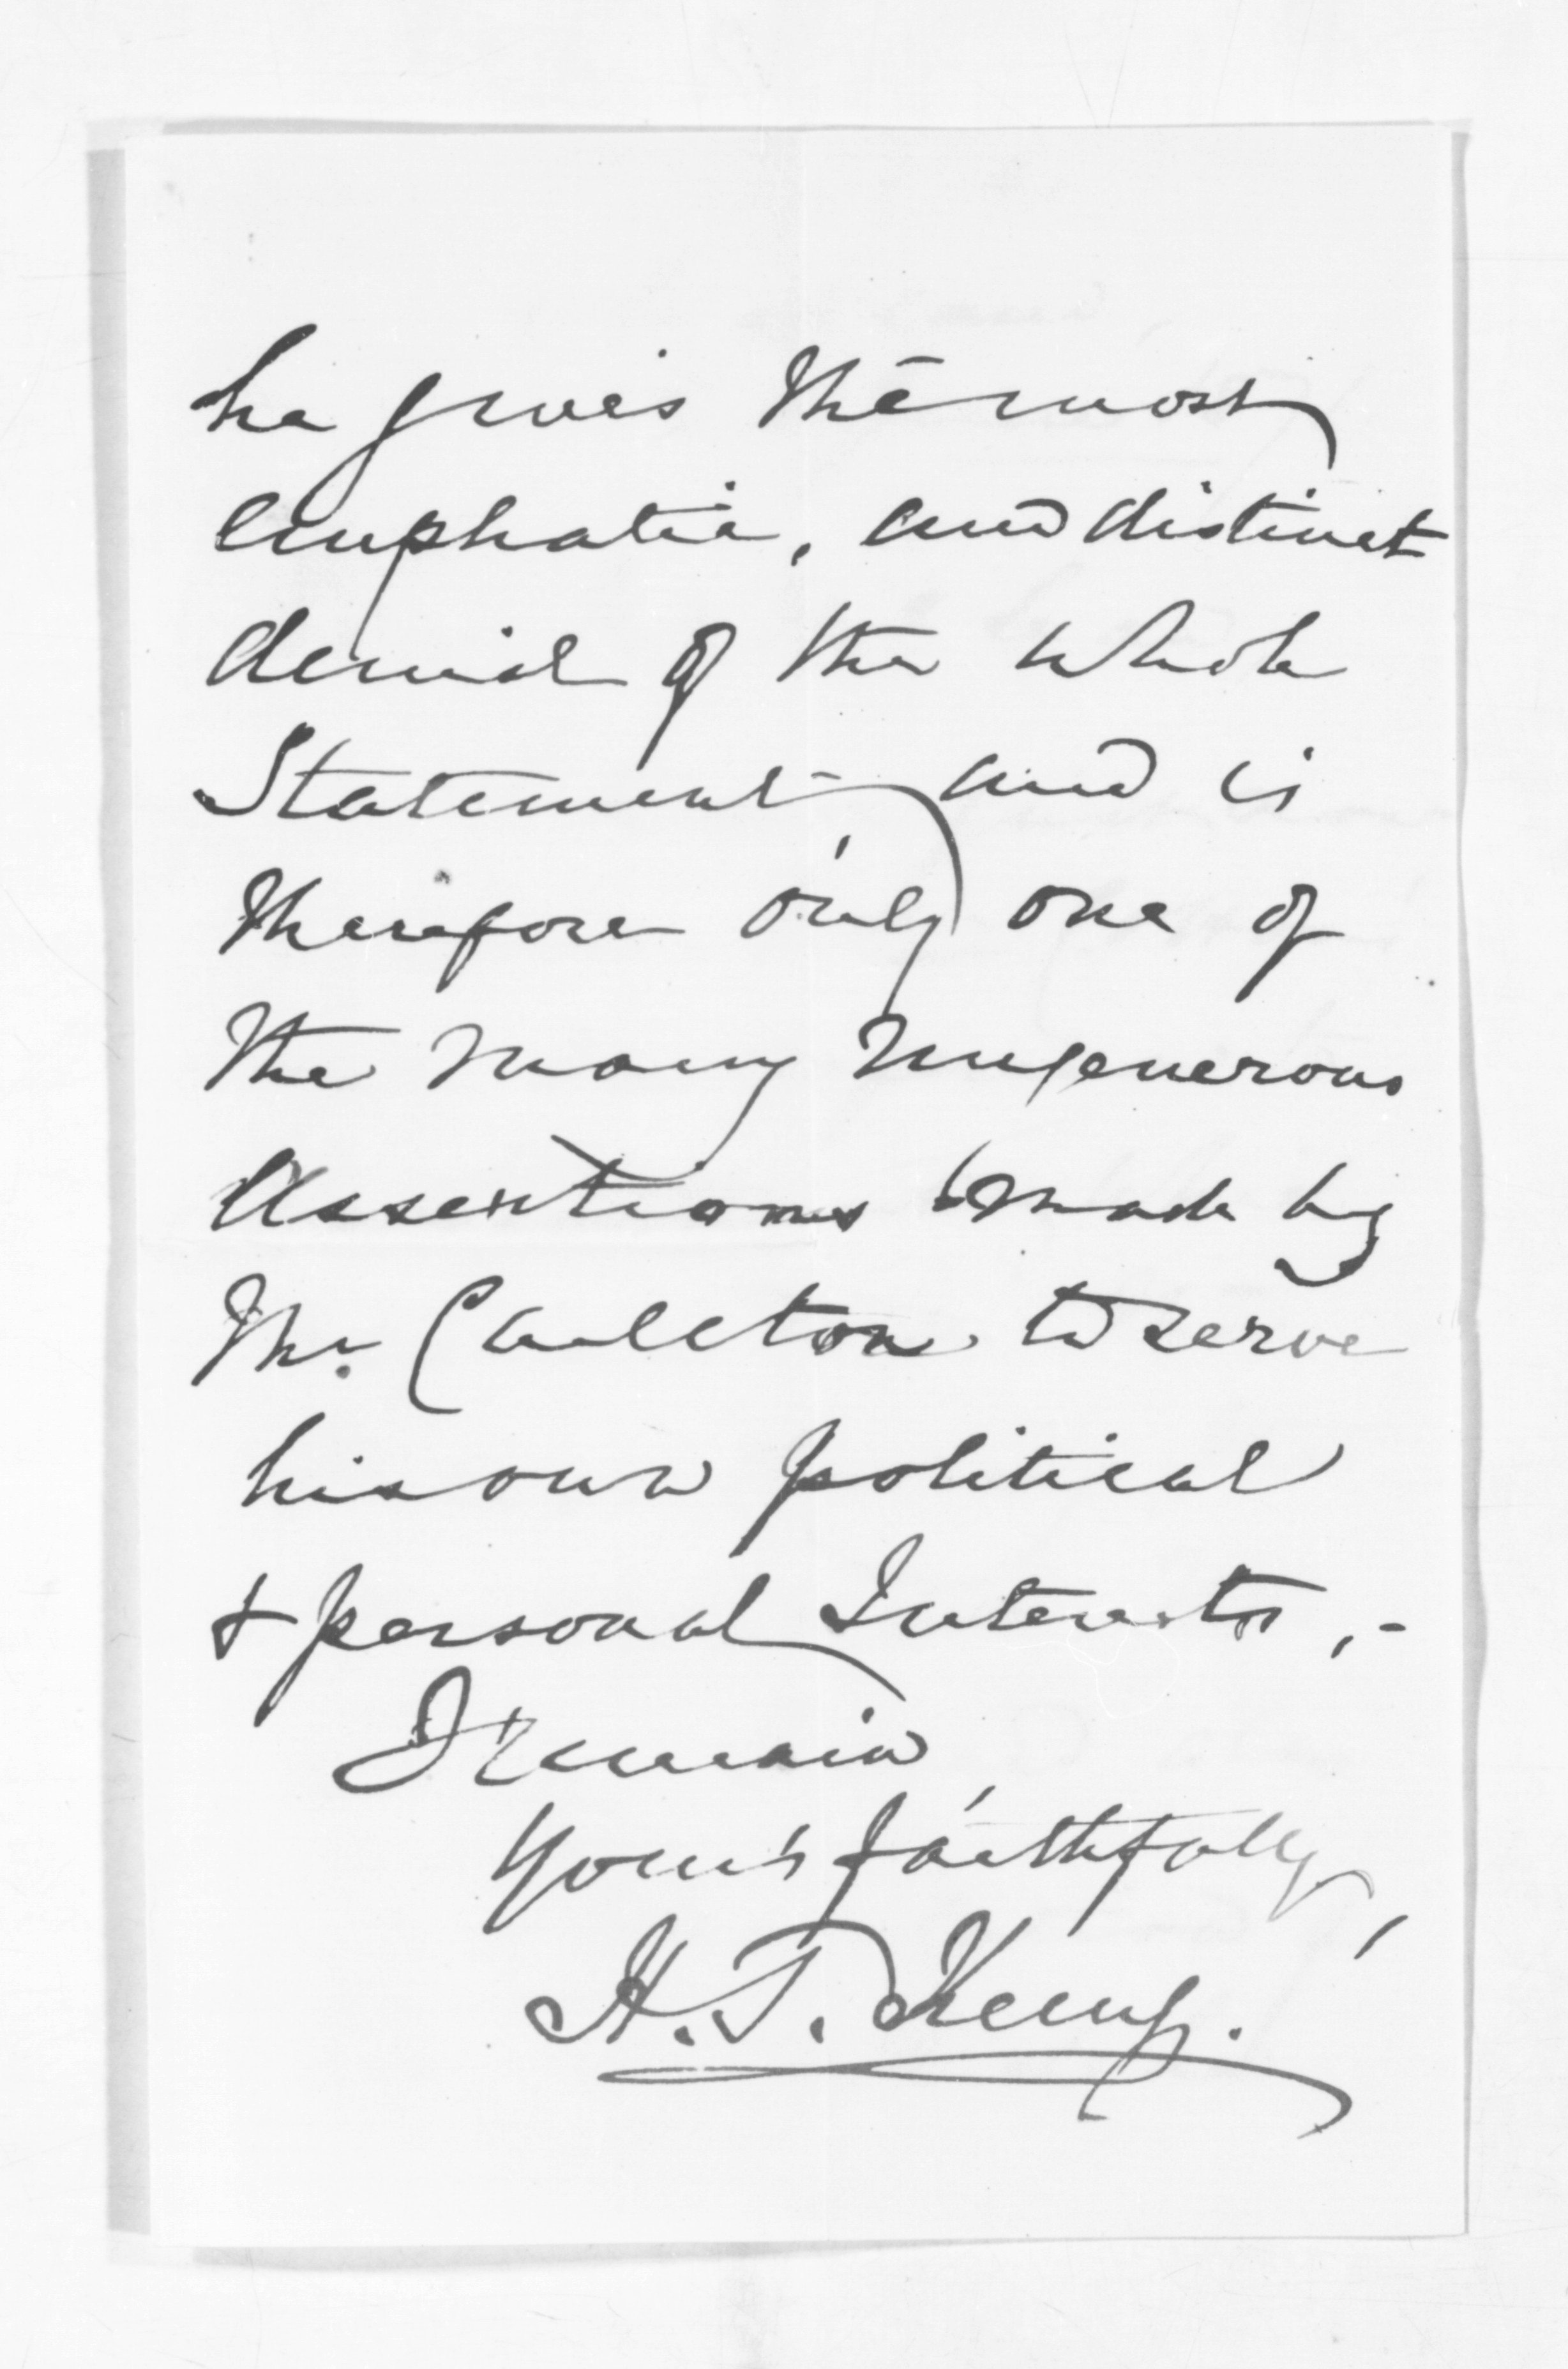 he gives the most
emphatic, and distinct
denial of the whole
Statement and is
therefore only one of
the many ungenerous
Assertions made by
Mr. Carleton to serve
his own political
& personal Interests,-
I remain,
Yours faithfully,
H. T. Kemp.